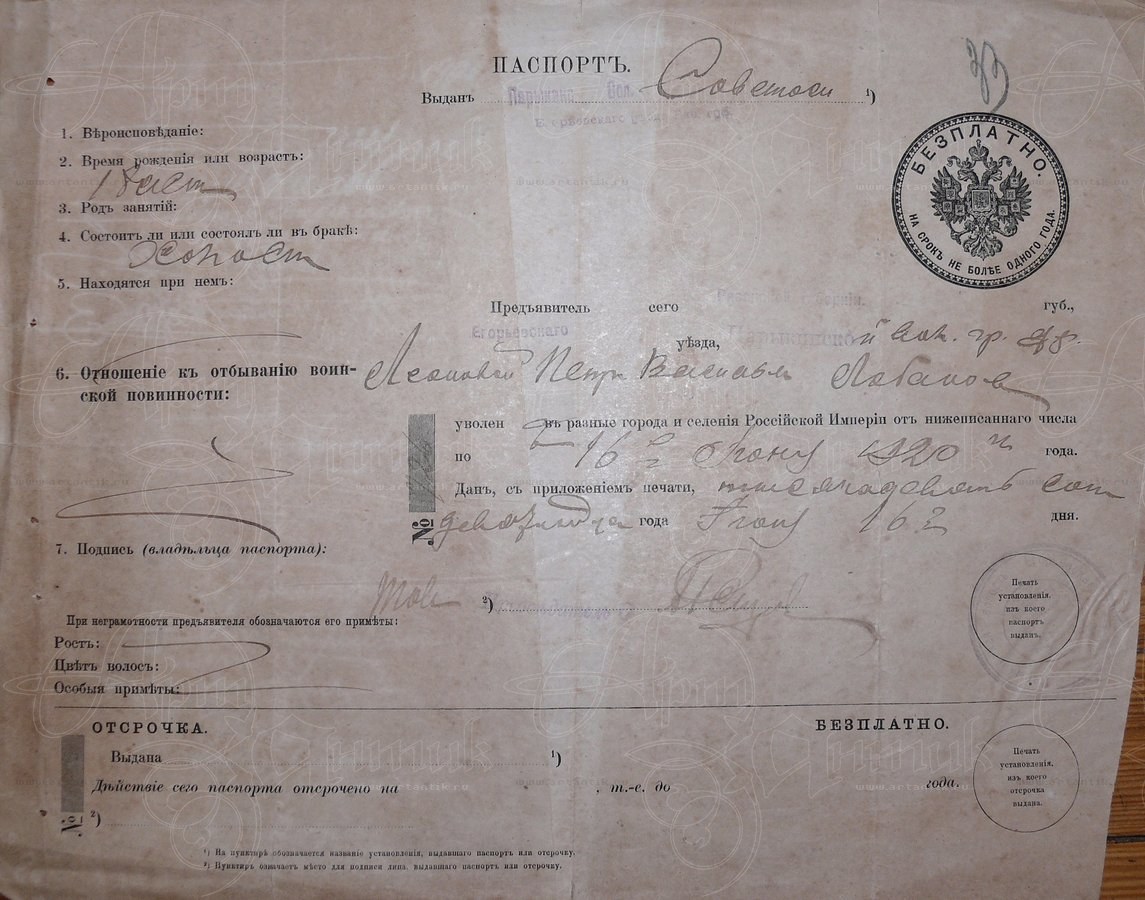 ПАСПОРТЪ.
Выданъ Парыкино Вол. Советоси ¹)
1. Вѣроисповѣданіе:
2. Время рожденія или возрастъ:
18 лет
3. Родъ занятій:
4. Состоитъ ли или состоялъ ли въ бракѣ:
Холост
5. Находятся при немъ:
БЕЗПЛАТНО.
НА СРОКЪ НЕ БОЛѢЕ ОДНОГО ГОДА.
Предъявитель сего губ.,
Егорьевскаго уѣзда,
6. Отношеніе къ отбыванію воин-
ской повинности:
Петр Васильев Лобанов
уволен въ разные города и селенія Россійской Имперіи от нижеписаннаго числа
по 16 г Июня 1920 г года.
Данъ, съ приложеніемъ печати, тысячадевять сот
№ года Июня 16 г дня.
7. Подпись (владѣльца паспорта):
²)
При неграмотности предъявителя обозначаются его примѣты:
Ростъ:
Цвѣтъ волосъ:
Особыя примѣты:
Печать
установленія,
изъ коего
паспортъ
выданъ.
ОТСРОЧКА.
БЕЗПЛАТНО.
Выдана ¹)
Дѣйствіе сего паспорта отсрочено на , т.-е. до года.
№ ²)
Печать
установленія,
изъ коего
отсрочка
выдана.
¹) На пунктирѣ обозначается названіе установленія, выдавшаго паспортъ или отсрочку.
²) Пунктиръ означаетъ мѣсто для подписи лица, выдавшаго паспортъ или отсрочку.